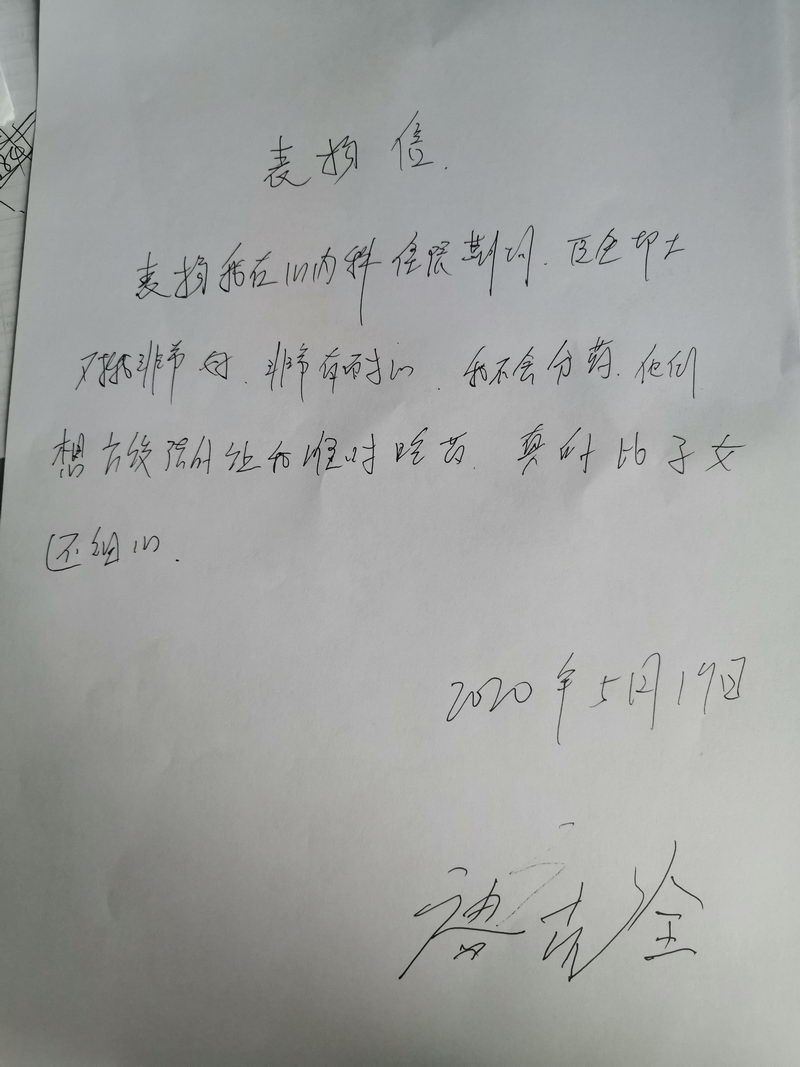 表扬信.
表扬我在心内科住院期间.医生护士
对我非常好.非常有耐心.我不会分药.他们
想方设法让我准时吃药.真的比子女
还细心.
2020年5月19日
克全